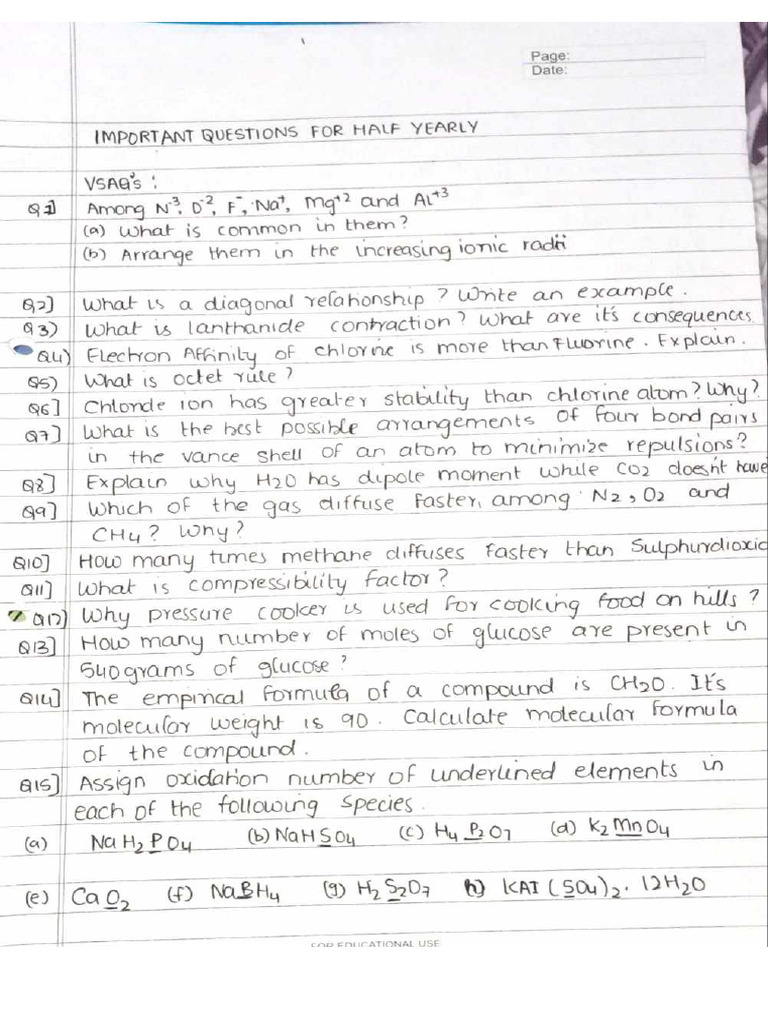 Page:
Date:
IMPORTANT QUESTIONS FOR HALF YEARLY
VSAQ's :
Q1] Among N⁻³, O⁻², F⁻, Na⁺, Mg⁺² and Al⁺³
(a) What is common in them?
(b) Arrange them in the increasing ionic radii
Q2] What is a diagonal relationship? Write an example.
Q3) What is lanthanide contraction? What are it's consequences
Q4) Electron Affinity of chlorine is more than Fluorine. Explain.
Q5) What is octet rule?
Q6] Chloride ion has greater stability than chlorine atom? Why?
Q7] What is the best possible arrangements of four bond pairs
in the vance shell of an atom to minimize repulsions?
Q8] Explain why H2O has dipole moment while CO2 doesn't have
Q9] Which of the gas diffuse faster, among N2, O2 and
CH4? Why?
Q10] How many times methane diffuses faster than Sulphurdioxid
Q11] What is compressibility factor?
Q12) Why pressure cooker is used for cooking food on hills?
Q13] How many number of moles of glucose are present in
540 grams of glucose?
Q14] The empirical formula of a compound is CH2O. It's
molecular weight is 90. Calculate molecular formula
of the compound.
Q15] Assign oxidation number of underlined elements in
each of the following species.
(a) NaH2PO4 (b) NaHSO4 (c) H4P2O7 (d) K2MnO4
(e) CaO2 (f) NaBH4 (g) H2S2O7 h) KAl(SO4)2. 12H2O
FOR EDUCATIONAL USE